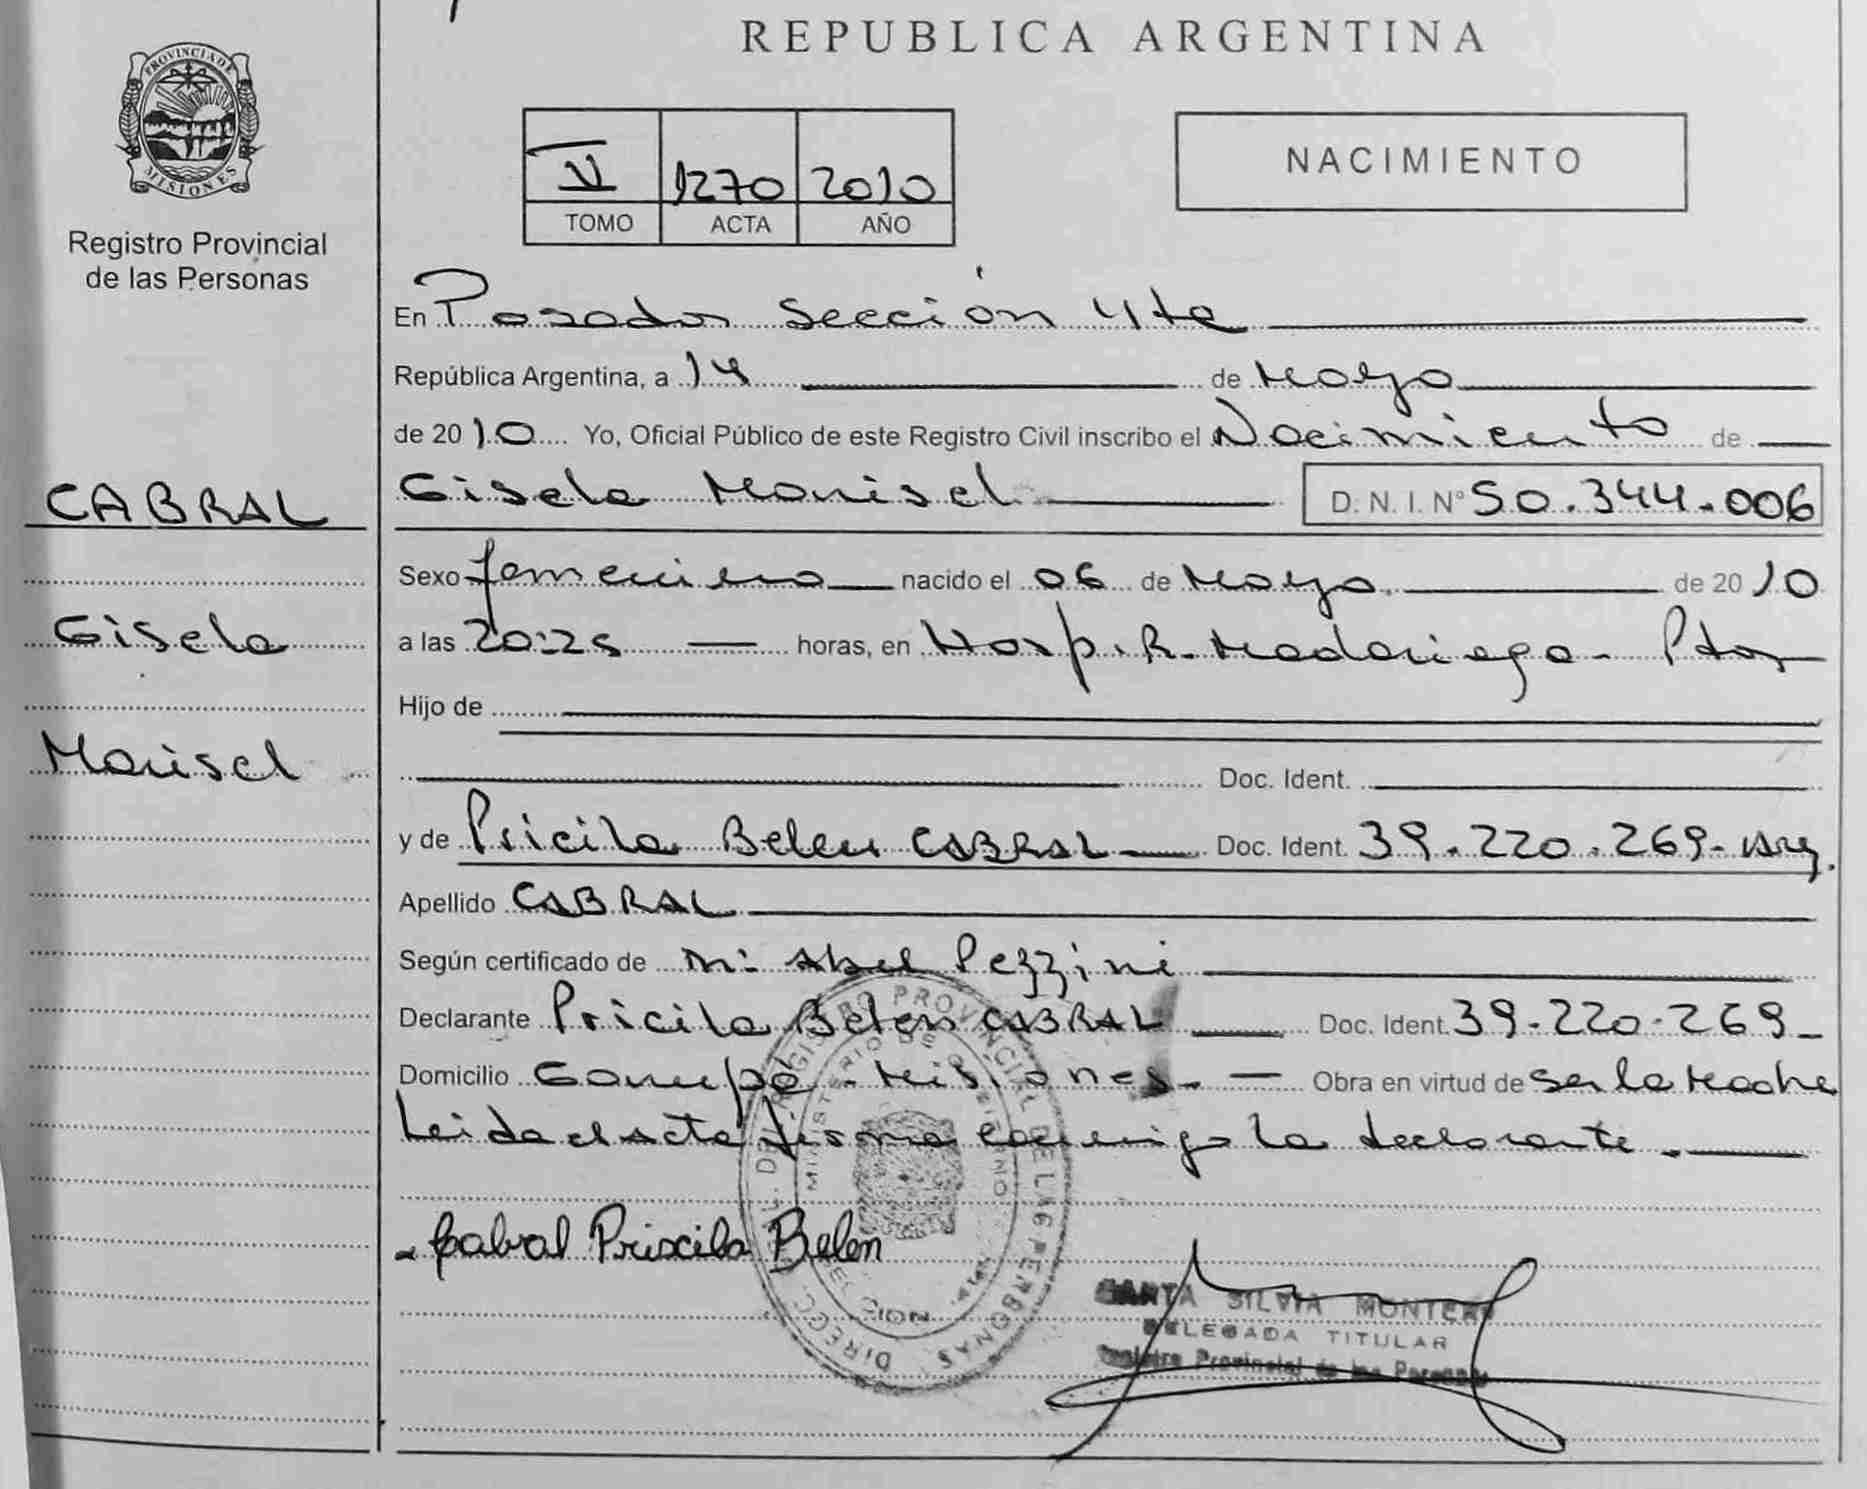 REPUBLICA ARGENTINA
PROVINCIA DE MISIONES
Registro Provincial
de las Personas
V 1270 2010
TOMO ACTA AÑO
NACIMIENTO
En Posadas Sección 4ta
República Argentina, a 14 de Mayo
de 2010 Yo, Oficial Público de este Registro Civil inscribo el Nacimiento de
CABRAL
Gisela Marisel D. N. I. N° 50.344.006
Sexo femenino nacido el 06 de Mayo de 2010
Gisela
a las 20:25 horas, en Hosp. R. Madariaga - Pdas
Hijo de
Marisel
Doc. Ident.
y de Pricila Belen CABRAL Doc. Ident. 39.220.269- Arg.
Apellido CABRAL
Según certificado de Abel Pezzini
Declarante Pricila Belen CABRAL Doc. Ident. 39-220-269-
Domicilio Garupá - Misiones. - Obra en virtud de ser la Madre
Leida el acta firma conmigo la declarante.
- Cabral Priscila Belén
DIRECC. DEL REGISTRO PROVINCIAL DE LAS PERSONAS
MINISTERIO DE GOBIERNO
SILVIA MONTERO
DELEGADA TITULAR
Registro Provincial de las Personas